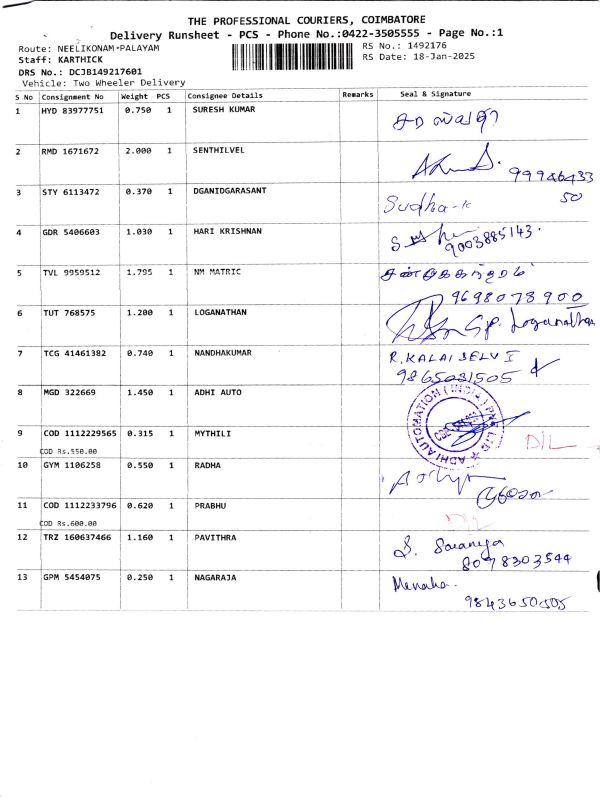 THE PROFESSIONAL COURIERS, COIMBATORE
Delivery Runsheet - PCS - Phone No.:0422-3505555 - Page No.:1
Route: NEELIKONAM-PALAYAM RS No.: 1492176
Staff: KARTHICK RS Date: 18-Jan-2025
DRS No.: DCJB149217601
Vehicle: Two Wheeler Delivery
S No Consignment No Weight PCS Consignee Details Remarks Seal & Signature
1 HYD 83977751 0.750 1 SURESH KUMAR
2 RMD 1671672 2.000 1 SENTHILVEL
99946433
50
3 STY 6113472 0.370 1 DGANIDGARASANT Sudha-k
4 GDR 5406603 1.030 1 HARI KRISHNAN
9003885143.
5 TVL 9959512 1.795 1 NM MATRIC
9698078900
6 TUT 768575 1.200 1 LOGANATHAN Sp. Loganathan
7 TCG 41461382 0.740 1 NANDHAKUMAR R.KALAI SELVI
9865031505
8 MGD 322669 1.450 1 ADHI AUTO
ADHI AUTOMATION (INDIA) PVT LTD
9 COD 1112229565 0.315 1 MYTHILI D/L
COD Rs.550.00
10 GYM 1106258 0.550 1 RADHA
11 COD 1112233796 0.620 1 PRABHU D/L
COD Rs.600.00
12 TRZ 160637466 1.160 1 PAVITHRA S. Saranya
8098303544
13 GPM 5454075 0.250 1 NAGARAJA Menaka.
9843650505